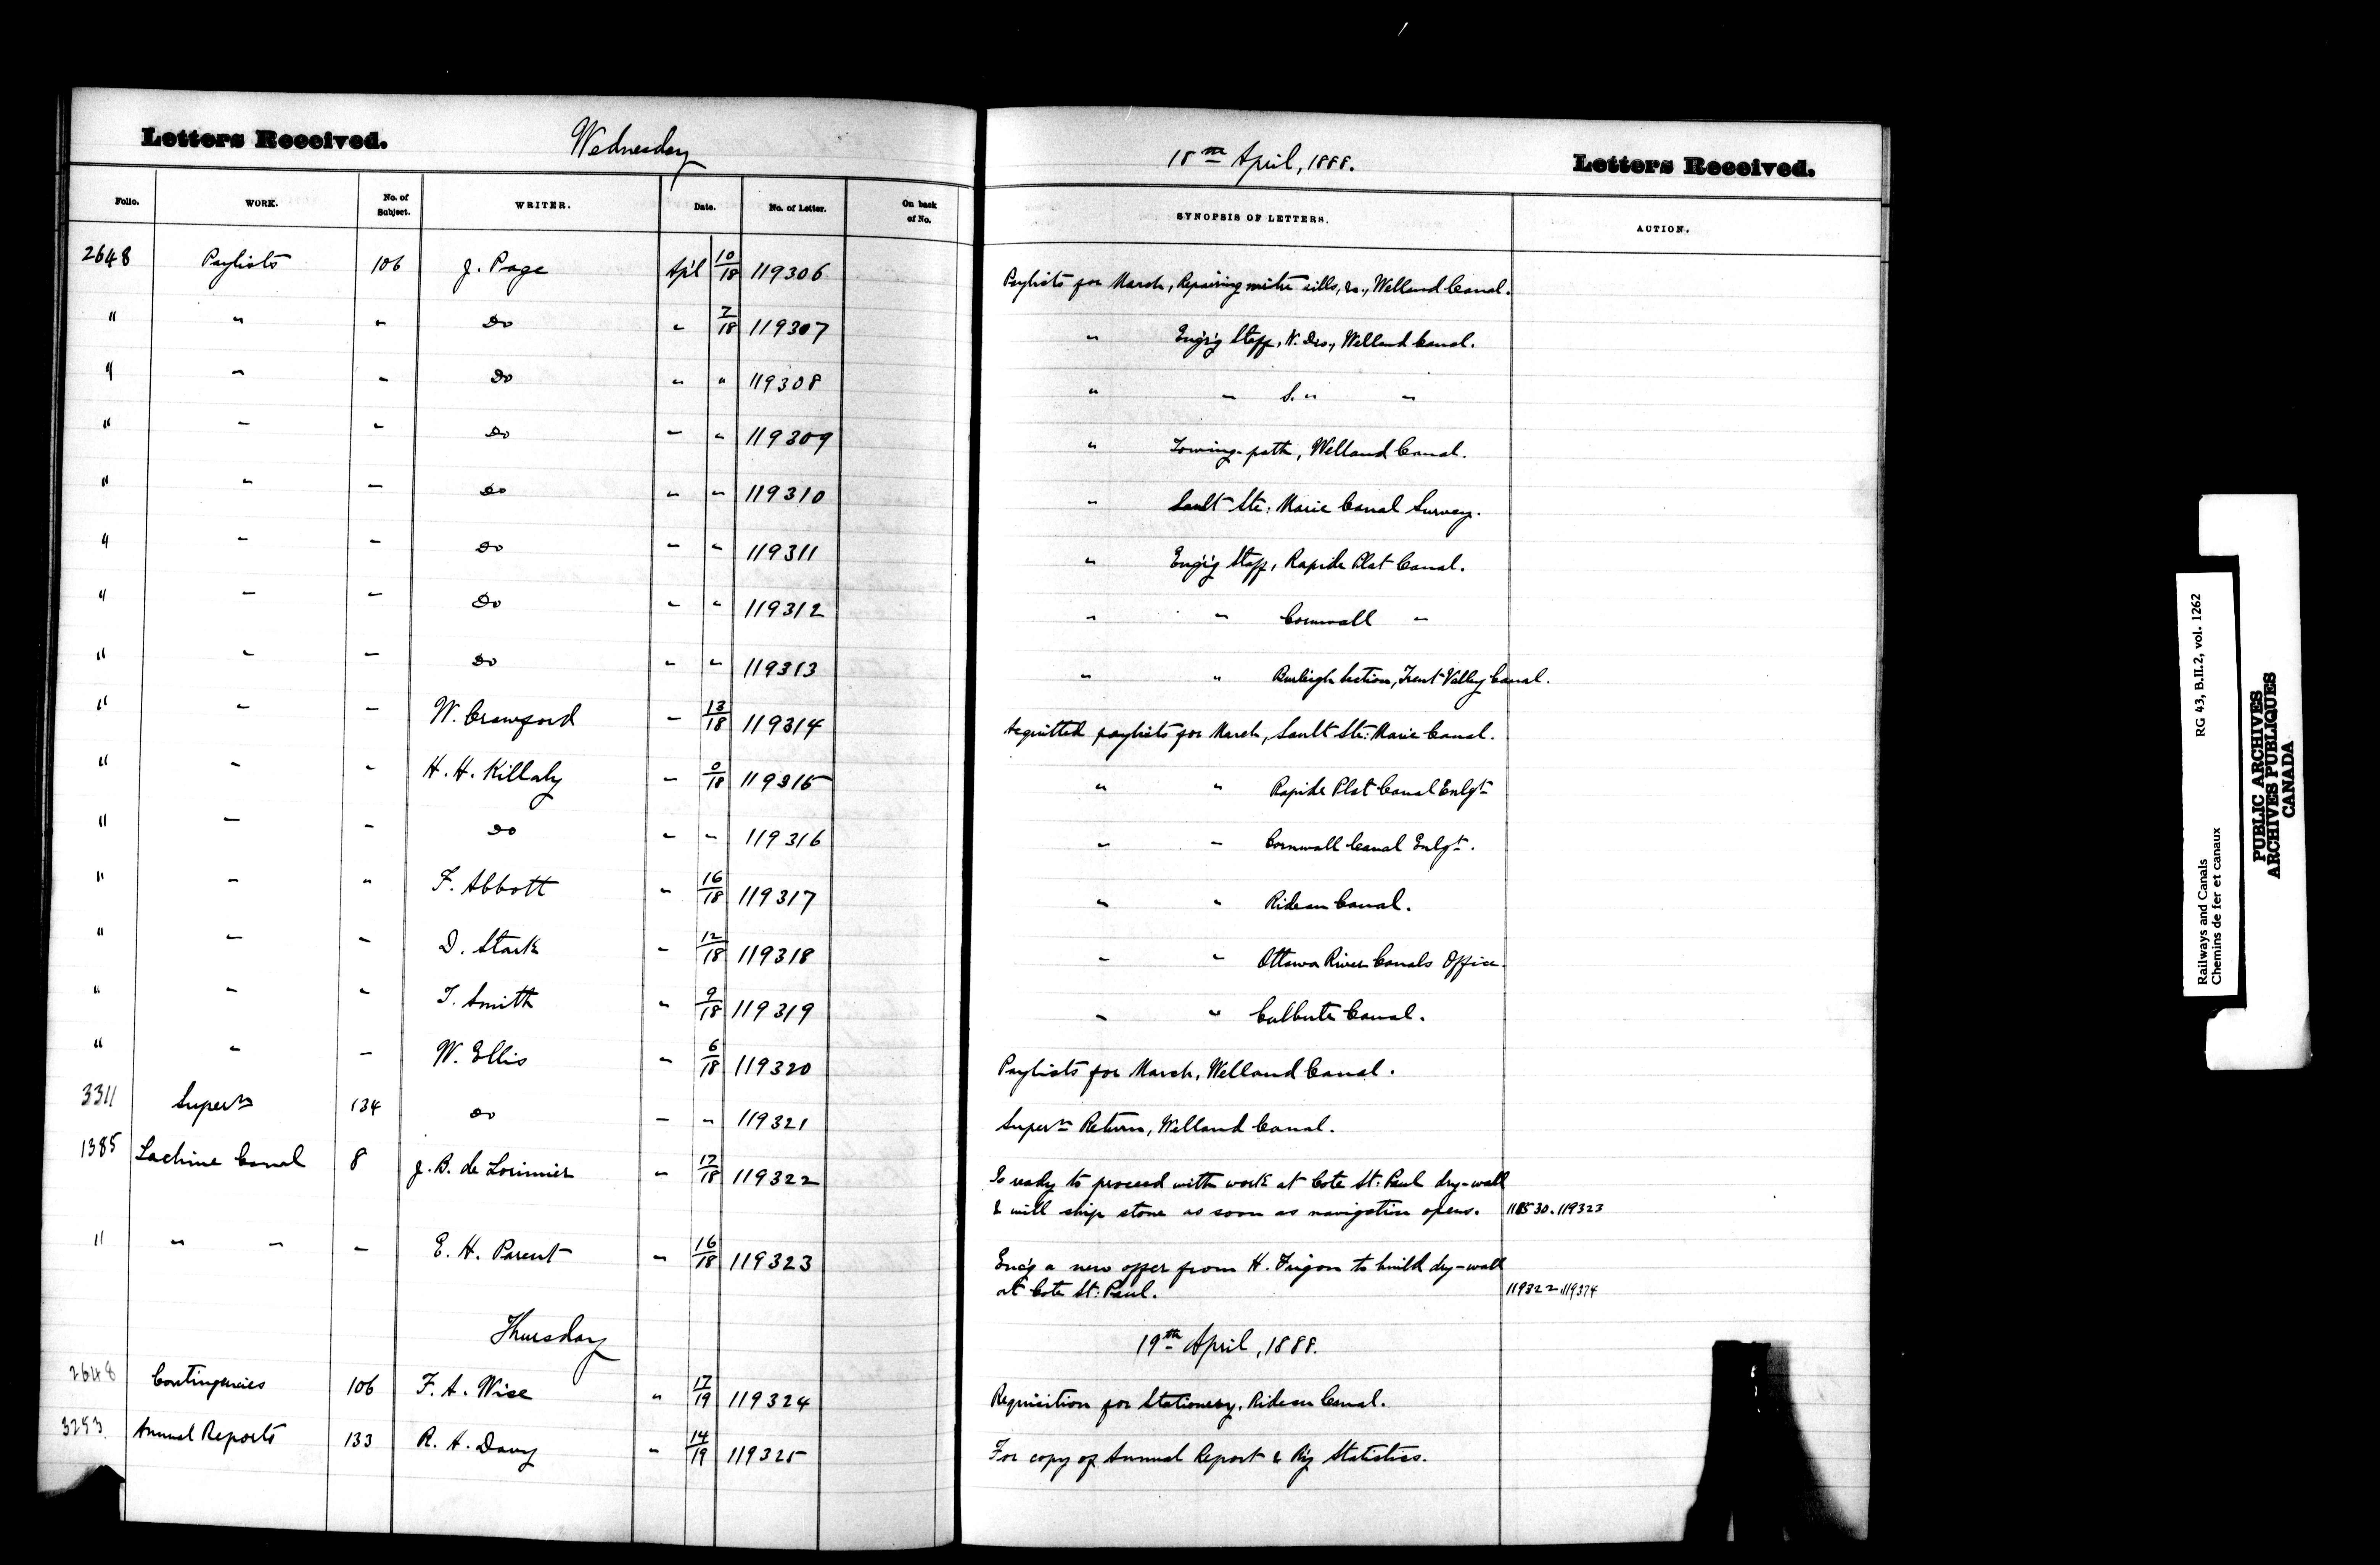 Letters Received. Wednesday 18th April, 1888. Letters Received.
Folio. WORK. No. of Subject. WRITER. Date. No. of Letter. On back of No. SYNOPSIS OF LETTERS. ACTION.
2648 Paylists 106 J. Page Apl 10/18 119306 Paylists for March, Repairing mitre sills, &c., Welland Canal.
" " " Do " 7/18 119307 " Eng'g Staff, N. Div., Welland Canal.
" " " Do " " 119308 " " S. " "
" " " Do " " 119309 " Towing-path, Welland Canal.
" " " Do " " 119310 " Sault Ste: Marie Canal Survey.
" " " Do " " 119311 " Eng'g Staff, Rapide Plat Canal.
" " " Do " " 119312 " " Cornwall "
" " " Do " " 119313 " " Burleigh Section, Trent Valley Canal.
" " " W. Crawford " 13/18 119314 Acquitted paylists for March, Sault Ste: Marie Canal.
" " " H. H. Killaly " /18 119315 " " Rapide Plat Canal Enlgt
" " " Do " " 119316 " " Cornwall Canal Enlgt.
" " " F. Abbott " 16/18 119317 " " Rideau Canal.
" " " D. Stark " 12/18 119318 " " Ottawa River Canals Office.
" " " T. Smith " 9/18 119319 " " Culbute Canal.
" " " W. Ellis " 6/18 119320 Paylists for March, Welland Canal.
3311 Supern 134 Do " " 119321 Supern Return, Welland Canal.
1385 Lachine Canal 8 J. B. de Lorimier " 17/18 119322 Is ready to proceed with work at Cote St: Paul dry-wall
& will ship stone as soon as navigation opens. 118530.119323
" " " " E. H. Parent " 16/18 119323 Enc'g a new offer from H. Trigon to build dry-wall
at Cote St: Paul. 119322.119374
Thursday 19th April, 1888.
2648 Contingencies 106 F. A. Wise " 17/19 119324 Requisition for Stationery, Rideau Canal.
3253 Annual Reports 133 R. A. Davy " 14/19 119325 For copy of Annual Report & R'y Statistics.
Railways and Canals RG 43, B.II.2, vol. 1262
Chemins de fer et canaux
PUBLIC ARCHIVES
ARCHIVES PUBLIQUES
CANADA